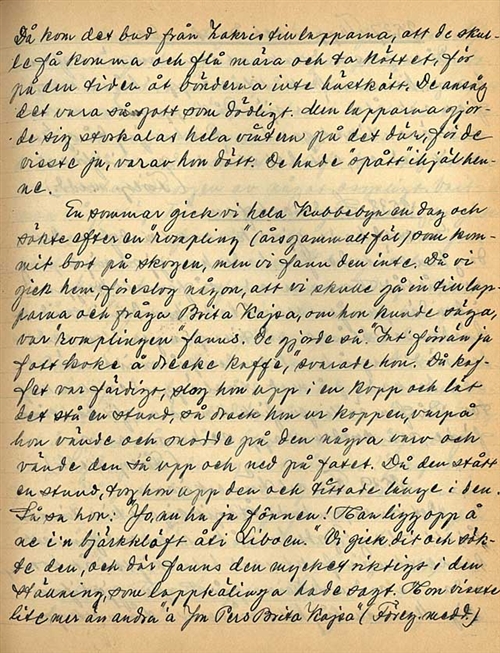 Då kom det bud från Zakris till lapparna, att de skul-
le få komma och flå mära och ta köttet, för
på den tiden åt bönderna inte hästkött. De ansåg
det vara så gott som dödligt. Men lapparna gjor-
de sig storkalas hela vintern på det där, för de
visste ju, varav hon dött. De hade "spått" ihjäl hen-
ne.
En sommar gick vi hela Kubbebyn en dag och
sökte efter en "rompling" (årsgammalt får) som kom-
mit bort på skogen, men vi fann den inte. Då vi
gick hem, föreslog någon, att vi skulle gå in till lap-
parna och fråga Brita Kajsa, om hon kunde säga,
var "romplingen" fanns. De gjorde så. "Int' förrän ja
fått koke å drecke kaffe," svarade hon. Då kaf-
fet var färdigt, slog hon upp i en kopp och lät
det stå en stund, så drack hon ur koppen, varpå
hon vände och snodde på den några varv och
vände den så upp och ned på fatet. Då den stått
en stund, tog hon upp den och tittade länge i den.
Så sa hon: "Jo, nu ha ja fönnen! Han ligg opp å
ne i'n bjärkkläft åti Liboen." Vi gick dit och sök-
te den, och där fanns den mycket riktigt i den
ställning, som lappkälinga hade sagt. Hon visste
lite mer än andra "a Jon Pers Brita Kajsa" (Föreg. medd.)